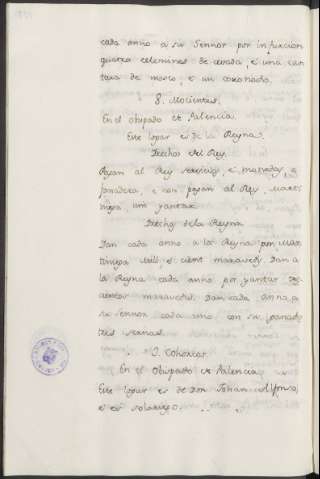 cada anno a su Sennor por infurcion
quatro celemines de cevada, e una can
tara de mosto, e un coronado.
8. Mocientes.
En el obispado de Palencia.
Este logar es de la Reyna.
Derechos del Rey.
Pagan al Rey servicios, e monedas, e
fonsadera, e non pagan al Rey marti
niega, nin yantar.
Derechos de la Reyna
Dan cada anno a la Reyna por mar
tiniega mill, e cient maravedis. Dan a
la Reyna cada anno por yantar
cientos maravedis. Dan cada anno a
su sennor cada uno con su
tres sernas.
9. Cohorcos.
En el Obispado de Palencia.
Este logar es de Don Johan Alfonso,
e es solariego.